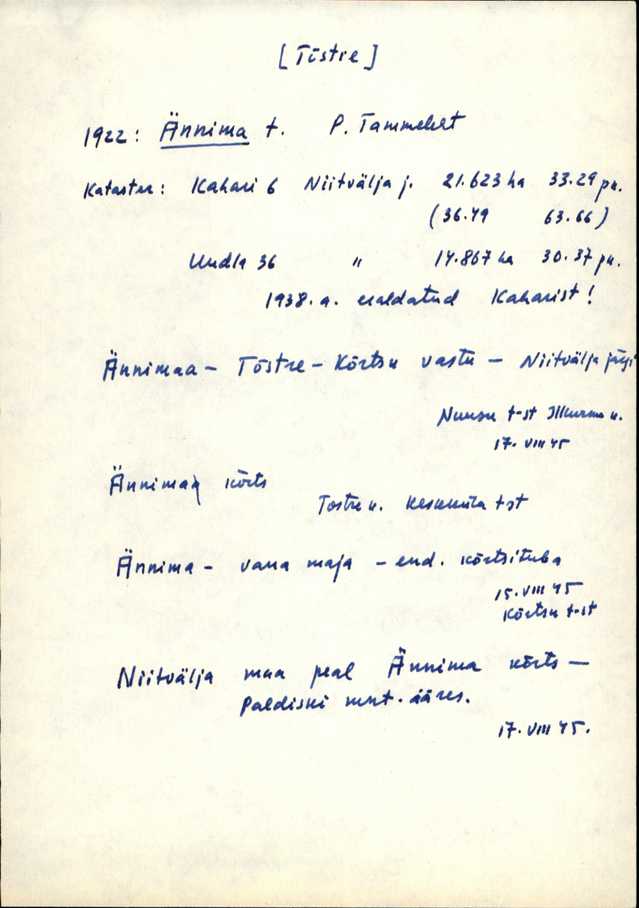 [Tõstre]
1922: Ännima t. P. Tammekert
Kataster: Kahari 6 Niitvälja j. 21.623 ha 33.29 pn.
(36.49 63.66)
Undla 36 " 14.867 ha 30.37 pn.
1938. a. eraldatud Kaharist!
Ännimaa - Tõstre - Kõrtsu vastu - Niitvälja järgi
Nuusu t-st Illurma k.
17. VIII 45
Ännimaa kõrts
Tõstre k. Keskküla t-st
Ännima - vana maja - end. kõrtsituba
15. VIII 45
Kõrtsu t-st
Niitvälja maa peal Ännima kõrts -
Paldiski mnt. ääres.
17. VIII 45.